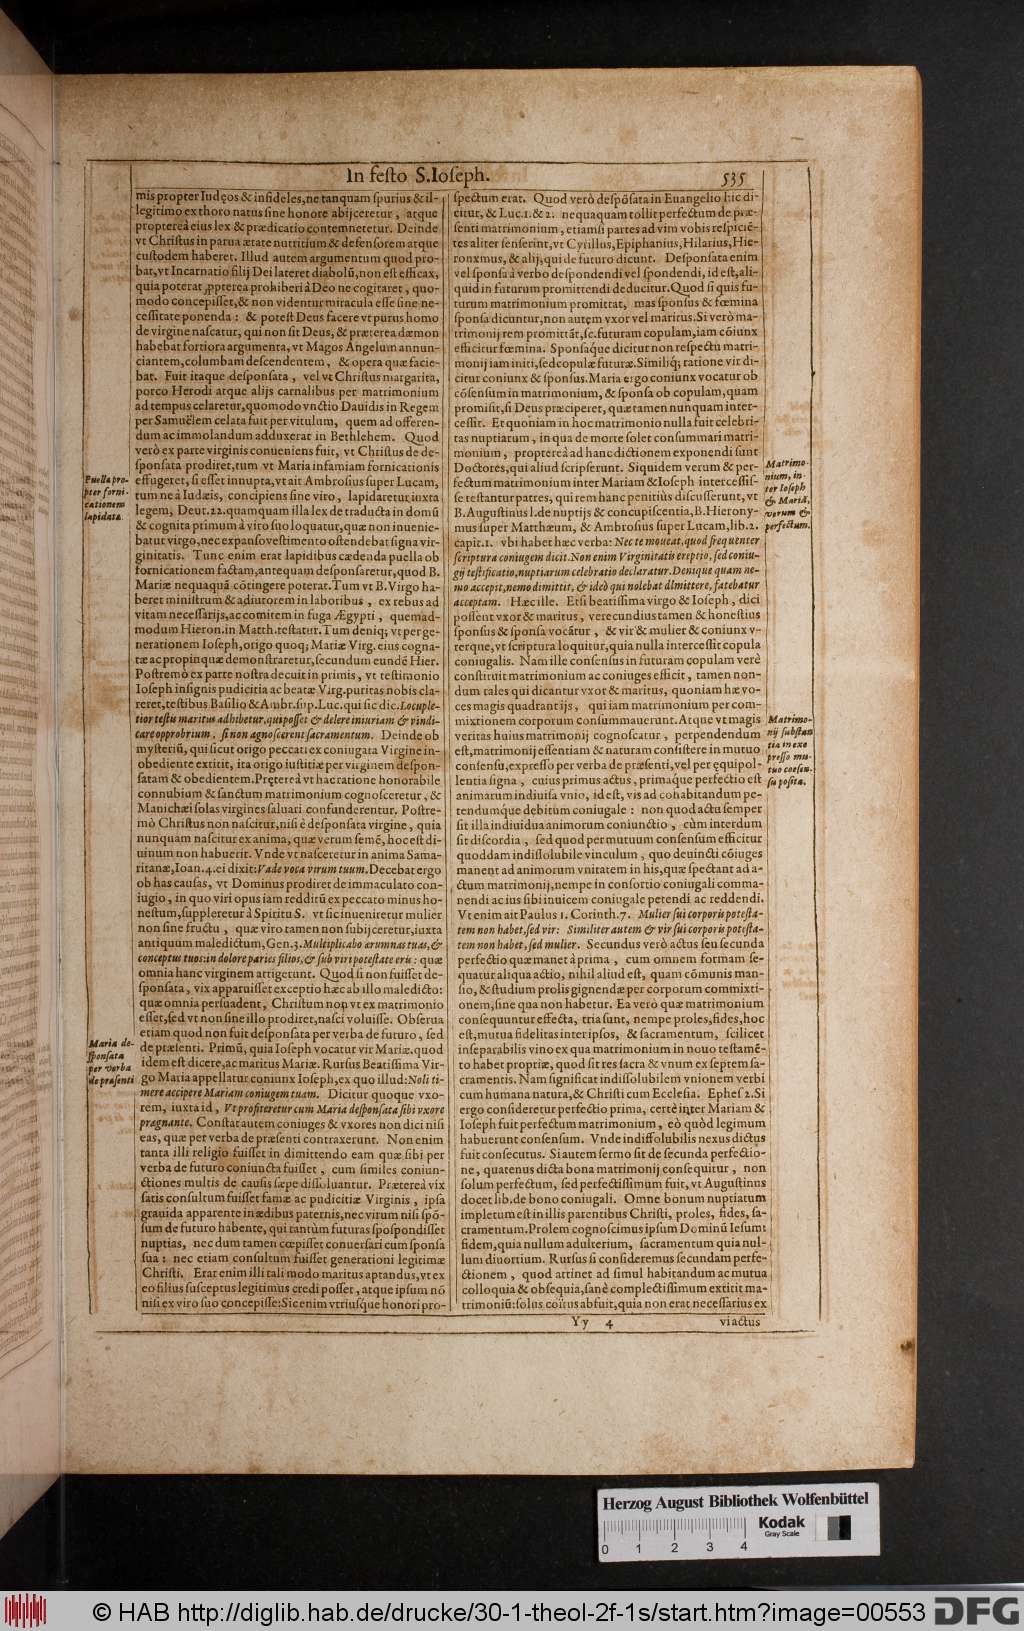 In festo S. Ioseph.
535
mis propter Iudęos & infideles, ne tanquam spurius & il-
legitimo ex thoro natus sine honore abijceretur, atque
proptereà eius lex & prædicatio contemneretur. Deinde
vt Christus in parua ætate nutritium & defensorem atque
custodem haberet. Illud autem argumentum quod pro-
bat, vt Incarnatio filij Dei lateret diabolū, non est efficax,
quia poterat propterea prohiberi à Deo ne cogitaret, quo-
modo concepisset, & non videntur miracula esse sine ne-
cessitate ponenda: & potest Deus facere vt purus homo
de virgine nascatur, qui non sit Deus, & præterea dæmon
habebat fortiora argumenta, vt Magos Angelum annun-
ciantem, columbam descendentem, & opera quæ facie-
bat. Fuit itaque desponsata, vel vt Christus margarita,
porco Herodi atque alijs carnalibus per matrimonium
ad tempus celaretur, quomodo vnctio Dauidis in Regem
per Samuëlem celata fuit per vitulum, quem ad offeren-
dum ac immolandum adduxerat in Bethlehem. Quod
verò ex parte virginis conueniens fuit, vt Christus de de-
sponsata prodiret, tum vt Maria infamiam fornicationis
effugeret, si esset innupta, vt ait Ambrosius super Lucam,
tum ne à Iudæis, concipiens sine viro, lapidaretur iuxta
legem, Deut. 22. quamquam illa lex de traducta in domū
& cognita primum à viro suo loquatur, quæ non inuenie-
batur virgo, nec expanso vestimento ostendebat signa vir-
ginitatis. Tunc enim erat lapidibus cædenda puella ob
fornicationem factam, antequam desponsaretur, quod B.
Mariæ nequaquā cōtingere poterat. Tum vt B. Virgo ha-
beret ministrum & adiutorem in laboribus, ex rebus ad
vitam necessarijs, ac comitem in fuga Ægypti, quemad-
modum Hieron. in Matth. testatur. Tum deniq; vt per ge-
nerationem Ioseph, origo quoq; Mariæ Virg. eius cogna-
tæ ac propinquæ demonstraretur, secundum eundē Hier.
Postremò ex parte nostra decuit in primis, vt testimonio
Ioseph insignis pudicitia ac beatæ Virg. puritas nobis cla-
reret, testibus Basilio & Ambr. sup. Luc. qui sic dic. Locuple-
tior testis maritus adhibetur, qui posset & delere iniuriam & vindi-
care opprobrium, si non agnosceret sacramentum. Deinde ob
mysteriū, qui sicut origo peccati ex coniugata Virgine in-
obediente extitit, ita origo iustitiæ per virginem despon-
satam & obedientem. Prętereà vt hac ratione honorabile
connubium & sanctum matrimonium cognosceretur, &
Manichæi solas virgines saluari confunderentur. Postre-
mò Christus non nascitur, nisi è desponsata virgine, quia
nunquam nascitur ex anima, quæ verum semē, hoc est di-
uinum non habuerit. Vnde vt nasceretur in anima Sama-
ritanæ, Ioan. 4. ei dixit: Vade voca virum tuum. Decebat ergo
ob has causas, vt Dominus prodiret de immaculato con-
iugio, in quo viri opus iam redditū ex peccato minus ho-
nestum, suppleretur à Spiritu S. vt sic inueniretur mulier
non sine fructu, quæ viro tamen non subijceretur, iuxta
antiquum maledictum, Gen. 3. Multiplicabo ærumnas tuas, &
conceptus tuos: in dolore paries filios, & sub viri potestate eris: quæ
omnia hanc virginem attigerunt. Quod si non fuisset de-
sponsata, vix apparuisset exceptio hæc ab illo maledicto:
quæ omnia persuadent, Christum non vt ex matrimonio
esset, sed vt non sine illo prodiret, nasci voluisse. Obserua
etiam quod non fuit desponsata per verba de futuro, sed
de præsenti. Primū, quia Ioseph vocatur vir Mariæ. quod
idem est dicere, ac maritus Mariæ. Rursus Beatissima Vir-
go Maria appellatur coniunx Ioseph, ex quo illud: Noli ti-
mere accipere Mariam coniugem tuam. Dicitur quoque vxo-
rem, iuxta id, Vt profiteretur cum Maria desponsata sibi vxore
prægnante. Constat autem coniuges & vxores non dici nisi
eas, quæ per verba de præsenti contraxerunt. Non enim
tanta illi religio fuisset in dimittendo eam quæ sibi per
verba de futuro coniuncta fuisset, cum similes coniun-
ctiones multis de causis sæpe dissoluantur. Prætereà vix
satis consultum fuisset famæ ac pudicitiæ Virginis, ipsa
grauida apparente in ædibus paternis, nec virum nisi spō-
sum de futuro habente, qui tantùm futuras spospondisset
nuptias, nec dum tamen cœpisset conuersari cum sponsa
sua: nec etiam consultum fuisset generationi legitimæ
Christi. Erat enim illi tali modo maritus aptandus, vt ex
eo filius susceptus legitimus credi posset, atque ipsum nō
nisi ex viro suo concepisse: Sic enim vtriusque honori pro-
Puella pro-
pter forni-
cationem
lapidata.
Maria de-
sponsata
per verba
de præsenti
spectum erat. Quod verò despōsata in Euangelio hic di-
citur, & Luc. 1. & 2. nequaquam tollit perfectum de præ-
senti matrimonium, etiamsi partes ad vim vobis respiciē-
tes aliter senserint, vt Cyrillus, Epiphanius, Hilarius, Hie-
ronymus, & alij, qui de futuro dicunt. Desponsata enim
vel sponsa à verbo despondendi vel spondendi, id est, ali-
quid in futurum promittendi deducitur. Quod si quis fu-
turum matrimonium promittat, mas sponsus & fœmina
sponsa dicuntur, non autem vxor vel maritus. Si verò ma-
trimonij rem promittāt, sc. futuram copulam, iam cōiunx
efficitur fœmina. Sponsaque dicitur non respectu matri-
monij iam initi, sed copulæ futuræ. Similiq; ratione vir di-
citur coniunx & sponsus. Maria ergo coniunx vocatur ob
cōsensum in matrimonium, & sponsa ob copulam, quam
promisit, si Deus præciperet, quæ tamen nunquam inter-
cessit. Et quoniam in hoc matrimonio nulla fuit celebri-
tas nuptiarum, in qua de morte solet consummari matri-
monium, proptereà ad hanc dictionem exponendi sunt
Doctores, qui aliud scripserunt. Siquidem verum & per-
fectum matrimonium inter Mariam & Ioseph intercessis-
se testantur patres, qui rem hanc penitiùs discusserunt, vt
B. Augustinus l. de nuptijs & concupiscentia, B. Hierony-
mus super Matthæum, & Ambrosius super Lucam, lib. 2.
capit. 1. vbi habet hæc verba: Nec te moueat, quod frequenter
scriptura coniugem dicit. Non enim Virginitatis ereptio, sed coniu-
gij testificatio, nuptiarum celebratio declaratur. Denique quam ne-
mo accepit, nemo dimittit, & ideò qui nolebat dimittere, fatebatur
acceptam. Hæc ille. Etsi beatissima virgo & Ioseph, dici
possent vxor & maritus, verecundius tamen & honestius
sponsus & sponsa vocātur, & vir & mulier & coniunx v-
terque, vt scriptura loquitur, quia nulla intercessit copula
coniugalis. Nam ille consensus in futuram copulam verè
constituit matrimonium ac coniuges efficit, tamen non-
dum tales qui dicantur vxor & maritus, quoniam hæ vo-
ces magis quadrant ijs, qui iam matrimonium per com-
mixtionem corporum consummauerunt. Atque vt magis
veritas huius matrimonij cognoscatur, perpendendum
est, matrimonij essentiam & naturam consistere in mutuo
consensu, expresso per verba de præsenti, vel per equipol-
lentia signa, cuius primus actus, primaque perfectio est
animarum indiuisa vnio, id est, vis ad cohabitandum pe-
tendumque debitum coniugale: non quod actu semper
sit illa indiuidua animorum coniunctio, cùm interdum
sit discordia, sed quod per mutuum consensum efficitur
quoddam indissolubile vinculum, quo deuincti cōiuges
manent ad animorum vnitatem in his, quæ spectant ad a-
ctum matrimonij, nempe in consortio coniugali comma-
nendi ac ius sibi inuicem coniugale petendi ac reddendi.
Vt enim ait Paulus 1. Corinth. 7. Mulier sui corporis potesta-
tem non habet, sed vir: Similiter autem & vir sui corporis potesta-
tem non habet, sed mulier. Secundus verò actus seu secunda
perfectio quæ manet à prima, cum omnem formam se-
quatur aliqua actio, nihil aliud est, quam cōmunis man-
sio, & studium prolis gignendæ per corporum commixti-
onem, sine qua non habetur. Ea verò quæ matrimonium
consequuntur effecta, tria sunt, nempe proles, fides, hoc
est, mutua fidelitas inter ipsos, & sacramentum, scilicet
inseparabilis vino ex qua matrimonium in nouo testamē-
to habet propriæ, quod sit res sacra & vnum ex septem sa-
cramentis. Nam significat indissolubilem vnionem verbi
cum humana natura, & Christi cum Ecclesia. Ephes 2. Si
ergo consideretur perfectio prima, certè inter Mariam &
Ioseph fuit perfectum matrimonium, eò quòd legimum
habuerunt consensum. Vnde indissolubilis nexus dictus
fuit consecutus. Si autem sermo sit de secunda perfectio-
ne, quatenus dicta bona matrimonij consequitur, non
solum perfectum, sed perfectissimum fuit, vt Augustinus
docet lib. de bono coniugali. Omne bonum nuptiarum
impletum est in illis parentibus Christi, proles, fides, sa-
cramentum. Prolem cognoscimus ipsum Dominū Iesum:
fidem, quia nullum adulterium, sacramentum quia nul-
lum diuortium. Rursus si consideremus secundam perfe-
ctionem, quod attinet ad simul habitandum ac mutua
colloquia & obsequia, sanè complectissimum extitit ma-
trimoniū: solus coitus abfuit, quia non erat necessarius ex
Matrimo-
nium, in-
ter Ioseph
& Mariā,
verum &
perfectum.
Matrimo-
nij substan
tia in exe
presso mu-
tuo consen-
su posita.
Yy 4
vi actus
Herzog August Bibliothek Wolfenbüttel
Kodak
Gray Scale
0 1 2 3 4
© HAB http://diglib.hab.de/drucke/30-1-theol-2f-1s/start.htm?image=00553
DFG